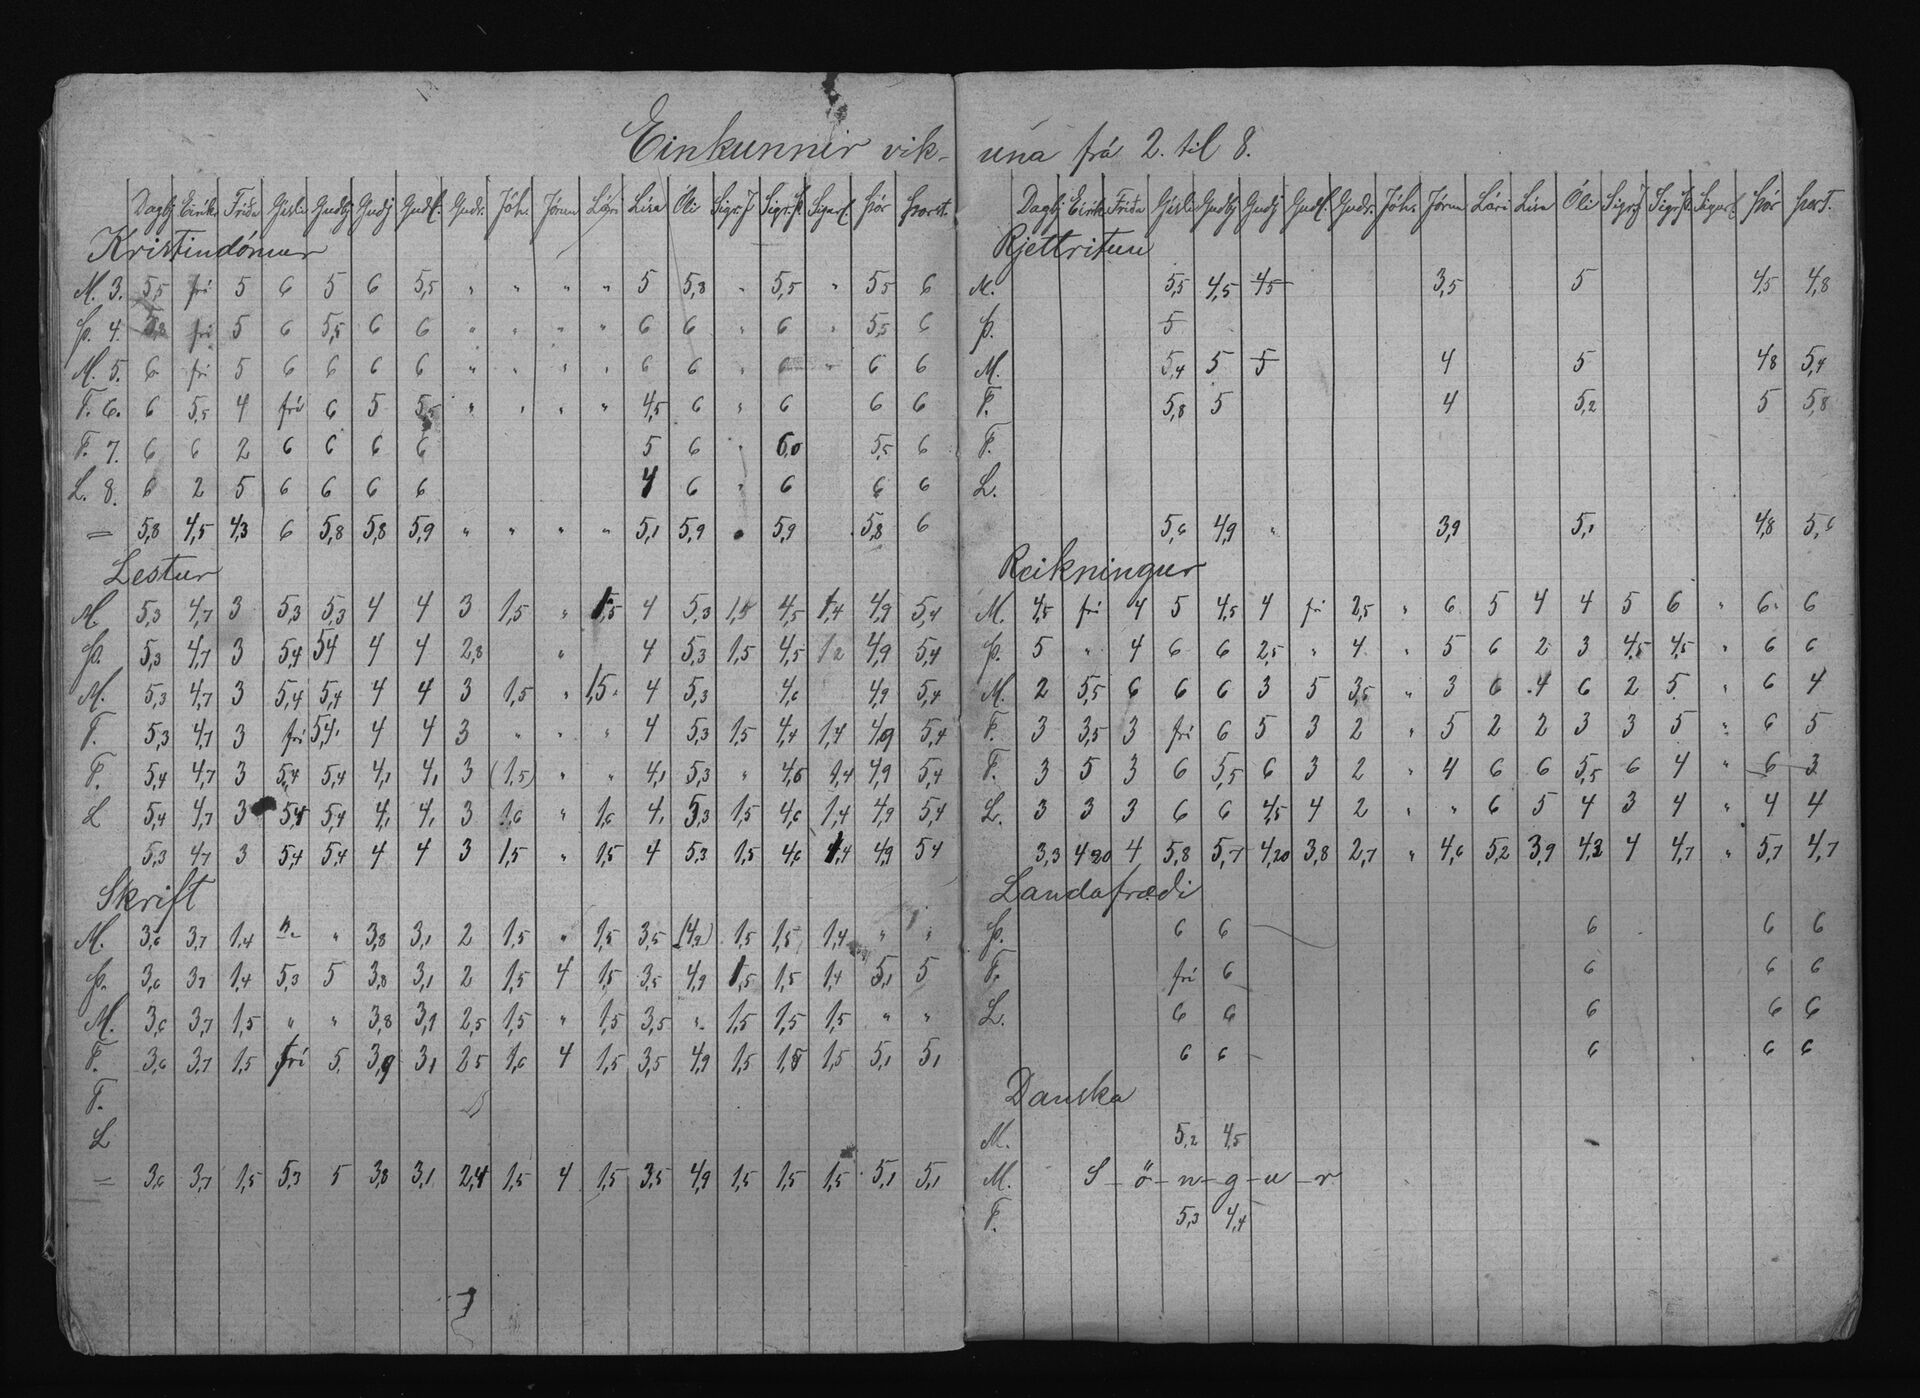 Einkunnir vik-
Dagbj Eirík Fríða Gísli Guðbj Guðj Guðl. Guðr. Jóh. Jórun Lári Lísa Óli Sigr.J Sigr.Þ Sigurl. Þór Þorst.
Kristindómur
M. 3. 5,5 frí 5 6 5 6 5,5 " " " " 5 5,8 " 5,5 " 5,5 6
Þ. 4. frí 5 6 5,5 6 6 " " " " 6 6 " 6 " 5,5 6
M. 5. 6 frí 5 6 6 6 6 " " " " 6 6 " 6 " 6 6
F. 6. 6 5,5 4 frí 6 5 5,5 " " " " 4,5 6 " 6 6 6
F. 7. 6 6 2 6 6 6 6 5 6 " 6,0 5,5 6
L. 8. 6 2 5 6 6 6 6 4 6 " 6 6 6
= 5,8 4,5 4,3 6 5,8 5,8 5,9 " " " " 5,1 5,9 " 5,9 5,8 6
Lestur
M. 5,3 4,7 3 5,3 5,3 4 4 3 1,5 " 1,5 4 5,3 1,5 4,5 1,4 4,9 5,4
Þ. 5,3 4,7 3 5,4 5,4 4 4 2,8 " 4 5,3 1,5 4,5 1,2 4,9 5,4
M. 5,3 4,7 3 5,4 5,4 4 4 3 1,5 " 1,5 4 5,3 4,6 4,9 5,4
F. 5,3 4,7 3 frí 5,4 4 4 3 " " " 4 5,3 1,5 4,4 1,4 4,9 5,4
F. 5,4 4,7 3 5,4 5,4 4,1 4,1 3 (1,5) " " 4,1 5,3 " 4,6 1,4 4,9 5,4
L 5,4 4,7 3 5,4 5,4 4,1 4,1 3 1,6 " 1,6 4,1 5,3 1,5 4,6 1,4 4,9 5,4
5,3 4,7 3 5,4 5,4 4 4 3 1,5 " 1,5 4 5,3 1,5 4,6 1,4 4,9 5,4
Skrift
M. 3,6 3,7 1,4 " 3,8 3,1 2 1,5 " 1,5 3,5 (4,9) 1,5 1,5 1,4 " "
Þ. 3,6 3,7 1,4 5,3 5 3,8 3,1 2 1,5 4 1,5 3,5 4,9 1,5 1,5 1,4 5,1 5
M. 3,6 3,7 1,5 " " 3,8 3,1 2,5 1,5 " 1,5 3,5 " 1,5 1,5 1,5 " "
F. 3,6 3,7 1,5 frí 5 3,9 3,1 2,5 1,6 4 1,5 3,5 4,9 1,5 1,5 1,5 5,1 5,1
F.
L
= 3,6 3,7 1,5 5,3 5 3,8 3,1 2,4 1,5 4 1,5 3,5 4,9 1,5 1,5 1,5 5,1 5,1
una frá 2. til 8.
Dagbj Eirík Fríða Gísli Guðbj Guðj Guðl. Guðr. Jóh. Jórun Lári Lísa Óli Sigr.J Sigr.Þ. Sigurl Þór Þorst.
Rjettritun
M. 5,5 4,5 4,5 3,5 5 4,5 4,8
Þ. 5
M. 5,4 5 5 4 5 4,8 5,4
F. 5,8 5 4 5,2 5 5,8
F.
L.
5,6 4,9 " 3,9 5,1 4,8 5,6
Reikningur
M. 4,5 frí 4 5 4,5 4 frí 2,5 " 6 5 4 4 5 6 " 6 6
Þ. 5 " 4 6 6 2,5 " 4 " 5 6 2 3 4,5 4,5 " 6 6
M. 2 5,5 6 6 6 3 5 3,5 " 3 6 4 6 2 5 " 6 4
F. 3 3,5 3 frí 6 5 3 2 " 5 2 2 3 3 5 " 6 5
F. 3 5 3 6 5,5 6 3 2 " 4 6 6 5,5 6 4 " 6 3
L. 3 3 3 6 6 4,5 4 2 " " 6 5 4 3 4 " 4 4
3,3 4,20 4 5,8 5,7 4,20 3,8 2,7 " 4,6 5,2 3,9 4,3 4 4,7 " 5,7 4,7
Landafræði
Þ. 6 6 6 6 6
F. frí 6 6 6 6
L. 6 6 6 6 6
6 6 6 6 6
Danska
M. 5,2 4,5
M. S-ö-n-g-u-r
F. 5,3 4,4